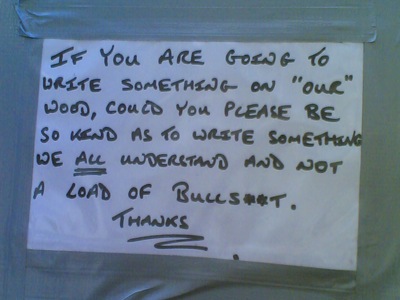 IF YOU ARE GOING TO
WRITE SOMETHING ON "OUR"
WOOD, COULD YOU PLEASE BE
SO KIND AS TO WRITE SOMETHING
WE ALL UNDERSTAND AND NOT
A LOAD OF BULLS**T.
THANKS